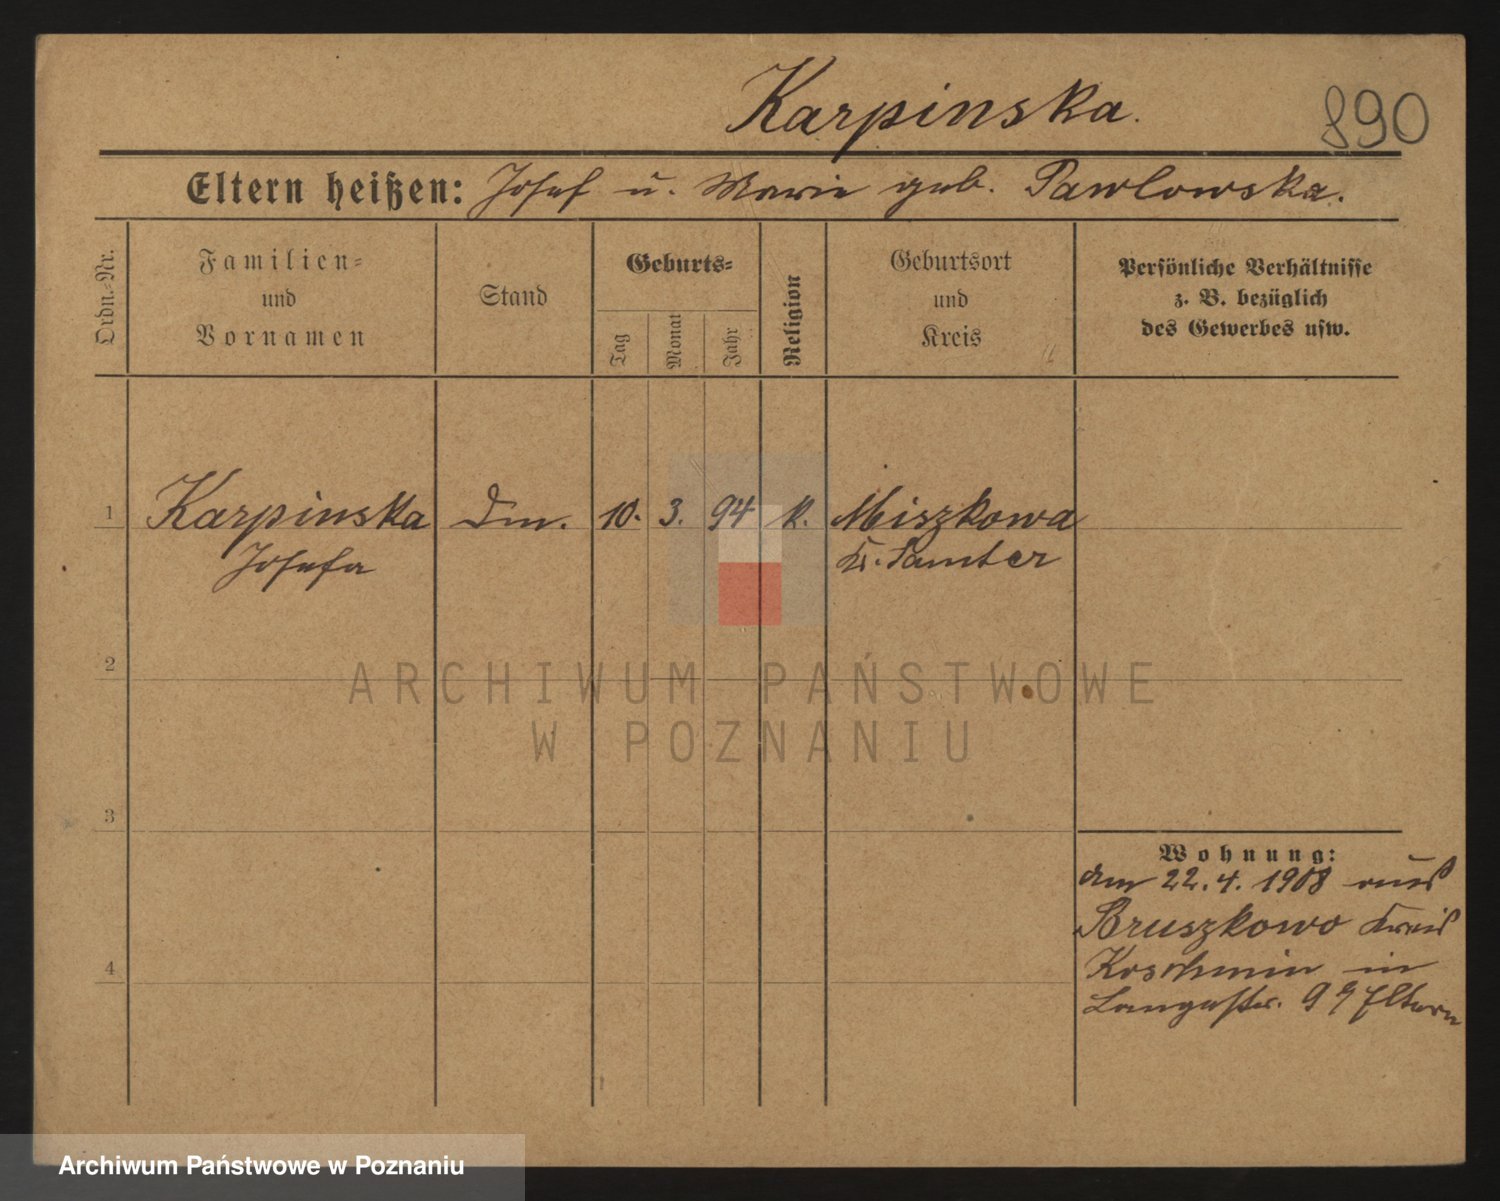 Karpinska.
890
Eltern heißen: Josef u. Marie geb. Pawlowska.
Ordn.-Nr.
Familien-
und
Vornamen
Stand
Geburts-
Tag
Monat
Jahr
Religion
Geburtsort
und
Kreis
Persönliche Verhältnisse
z. B. bezüglich
des Gewerbes usw.
1 Karpinska Dm. 10. 3. 94 k. Miszkowa
Josefa Kr. Samter
2
3
4
Wohnung:
am 22.4.1908 aus
Bruszkowo Kreis
Koschmin in
Langestr. 9 Eltern
ARCHIWUM PAŃSTWOWE
W POZNANIU
Archiwum Państwowe w Poznaniu